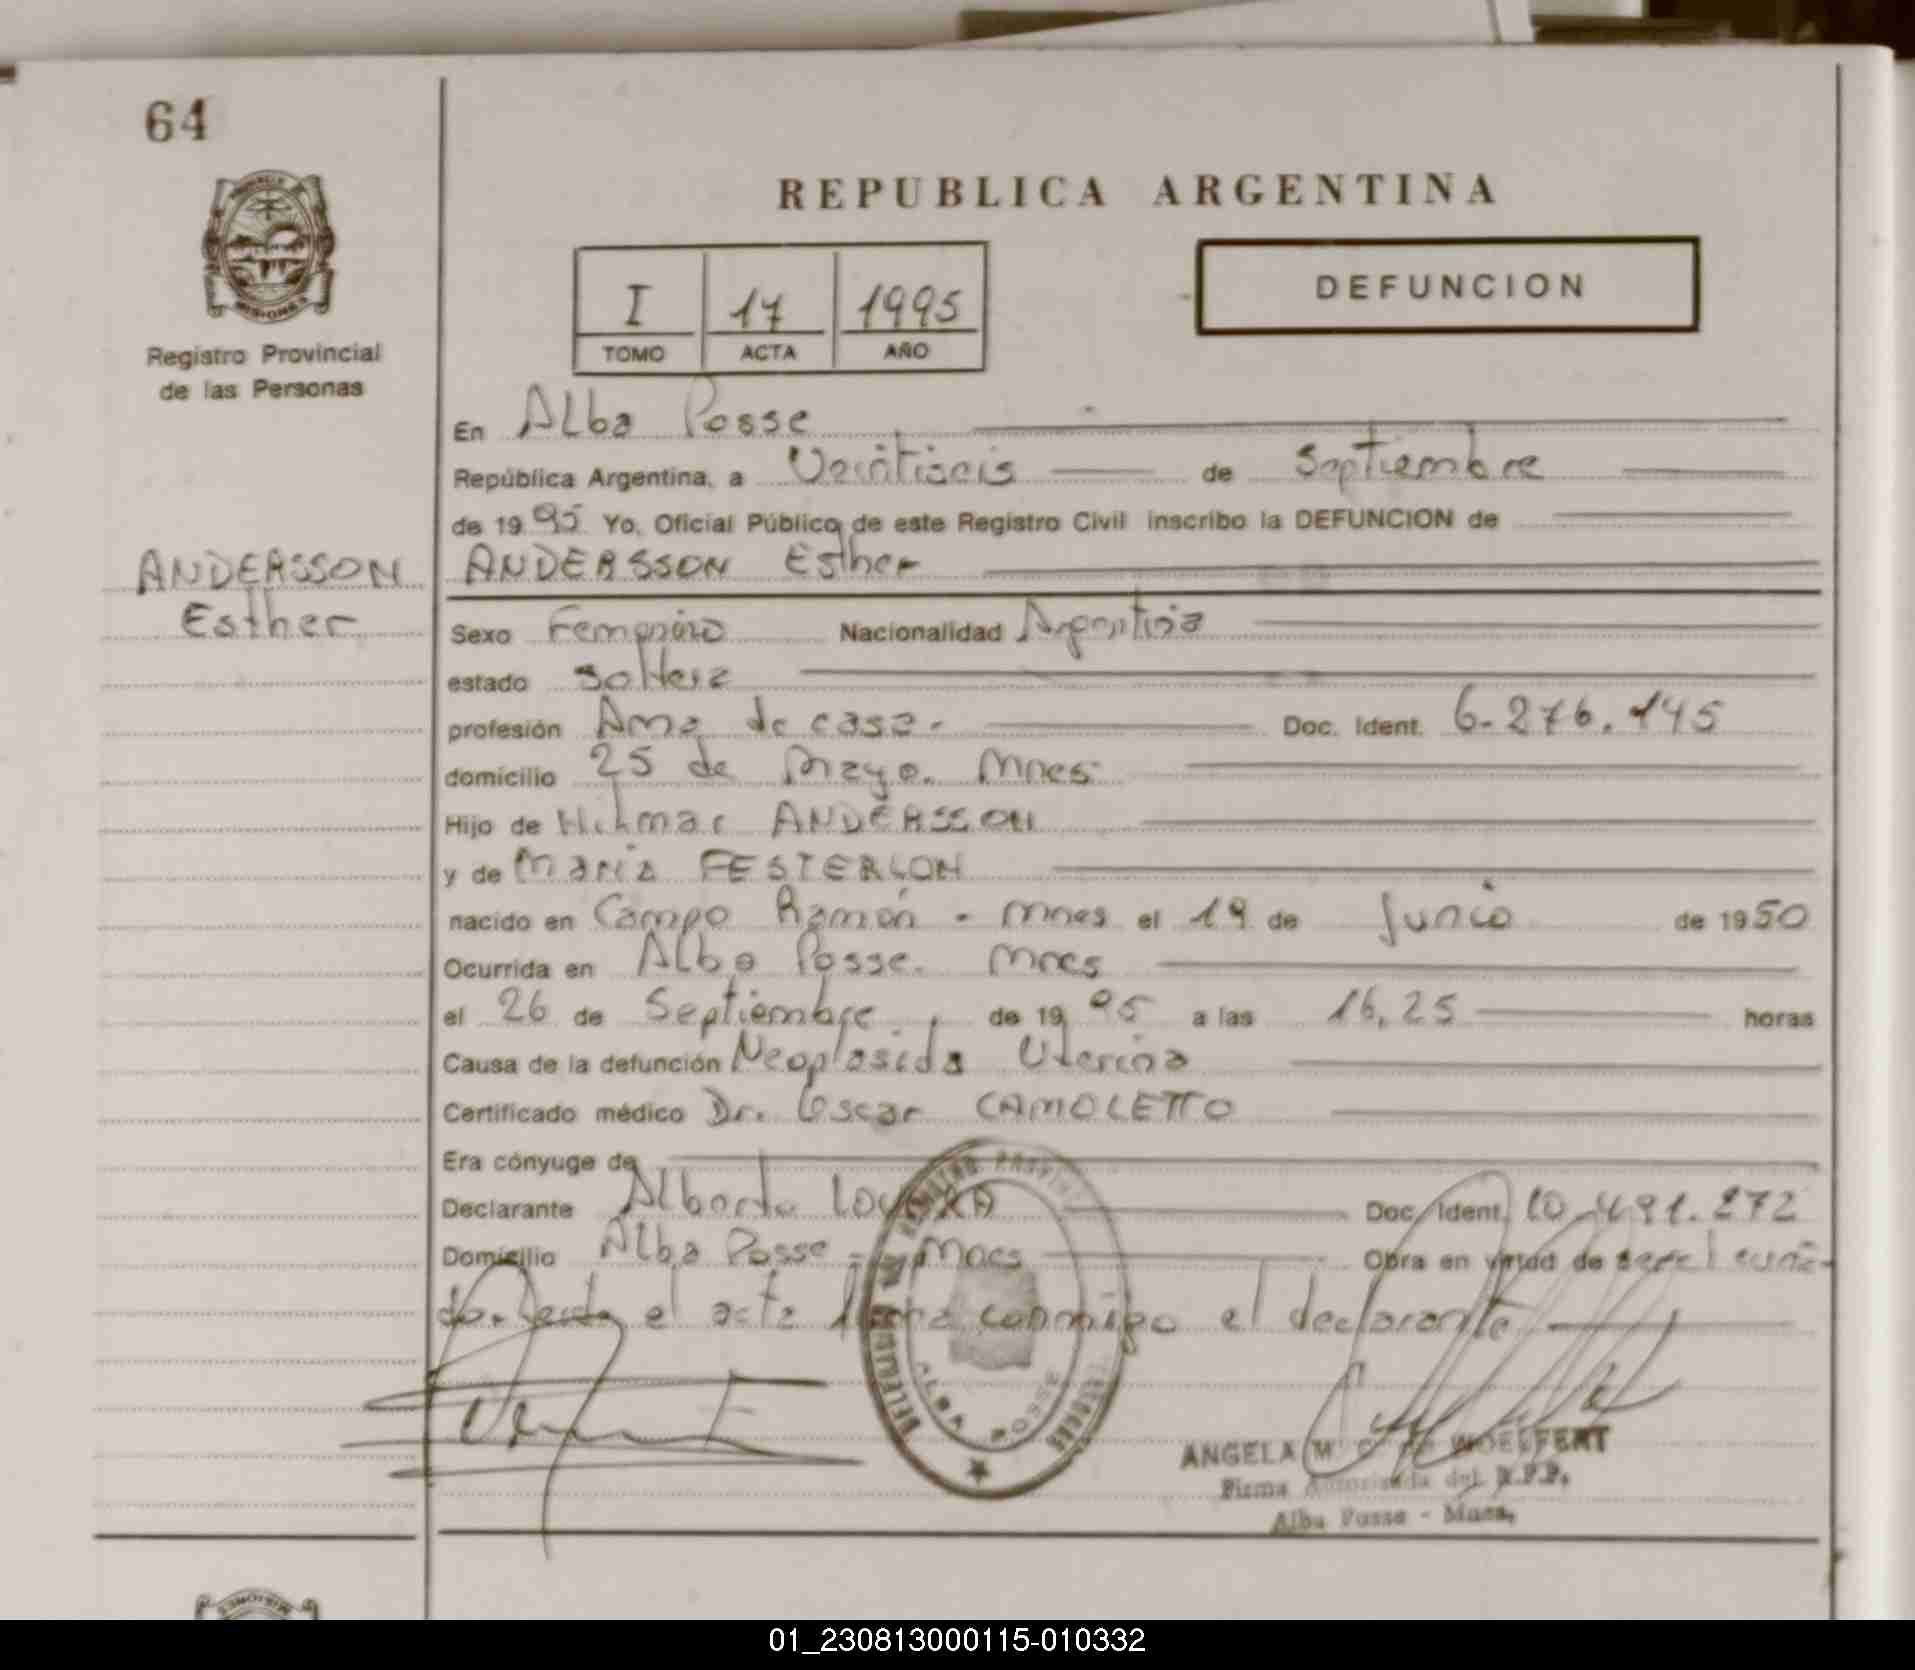 64
REPUBLICA ARGENTINA
I 17 1995
TOMO ACTA AÑO
DEFUNCION
Registro Provincial
de las Personas
En Alba Posse
República Argentina, a Veintiseis de Septiembre
de 1995 Yo, Oficial Público de este Registro Civil inscribo la DEFUNCION de
ANDERSSON
Esther
ANDERSSON Esther
Sexo Femenino Nacionalidad Argentina
estado soltera
profesión Ama de casa. Doc. Ident. 6.276.145
domicilio 25 de Mayo. Mnes
Hijo de Hilmar ANDERSSON
y de Maria FESTERLON
nacido en Campo Ramón - Mnes el 19 de Junio de 1950
Ocurrida en Alba Posse. Mnes
el 26 de Septiembre, de 1995 a las 16,25 horas
Causa de la defunción Neoplasida Uterina
Certificado médico Dr. Oscar CAMOLETTO
Era cónyuge de
Declarante Alberto Doc. Ident. 10.491.272
Domicilio Alba Posse - Mnes Obra en virtud de ser el cuña-
do. el acta firma conmigo el declarante
REGISTRO PROVINCIAL
ALBA POSSE
ANGELA M. WOELFERT
Firma Autorizada del R.P.P.
Alba Posse - Mnes.
MISIONES
01_230813000115-010332